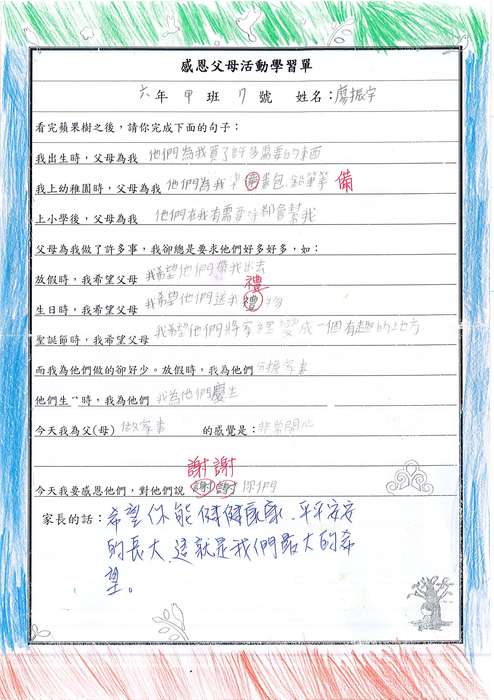 感恩父母活動學習單
六年 甲 班 7 號 姓名：廖振宇
看完蘋果樹之後，請你完成下面的句子：
我出生時，父母為我 他們為我買了許多需要的東西
備
我上幼稚園時，父母為我 他們為我準備書包、鉛筆等
上小學後，父母為我 他們在我有需要時都會幫我
父母為我做了許多事，我卻總是要求他們好多好多，如：
放假時，我希望父母 我希望他們帶我出去
禮
生日時，我希望父母 我希望他們送我禮物
聖誕節時，我希望父母 我希望他們將家裡變成一個有趣的地方
而我為他們做的卻好少。放假時，我為他們 分擔家事
他們生日時，我為他們 我為他們慶生
今天我為父(母) 做家事 的感覺是：非常開心
謝謝
今天我要感恩他們，對他們說 謝謝你們
家長的話：希望你能健健康康、平平安安
的長大，這就是我們最大的希
望。